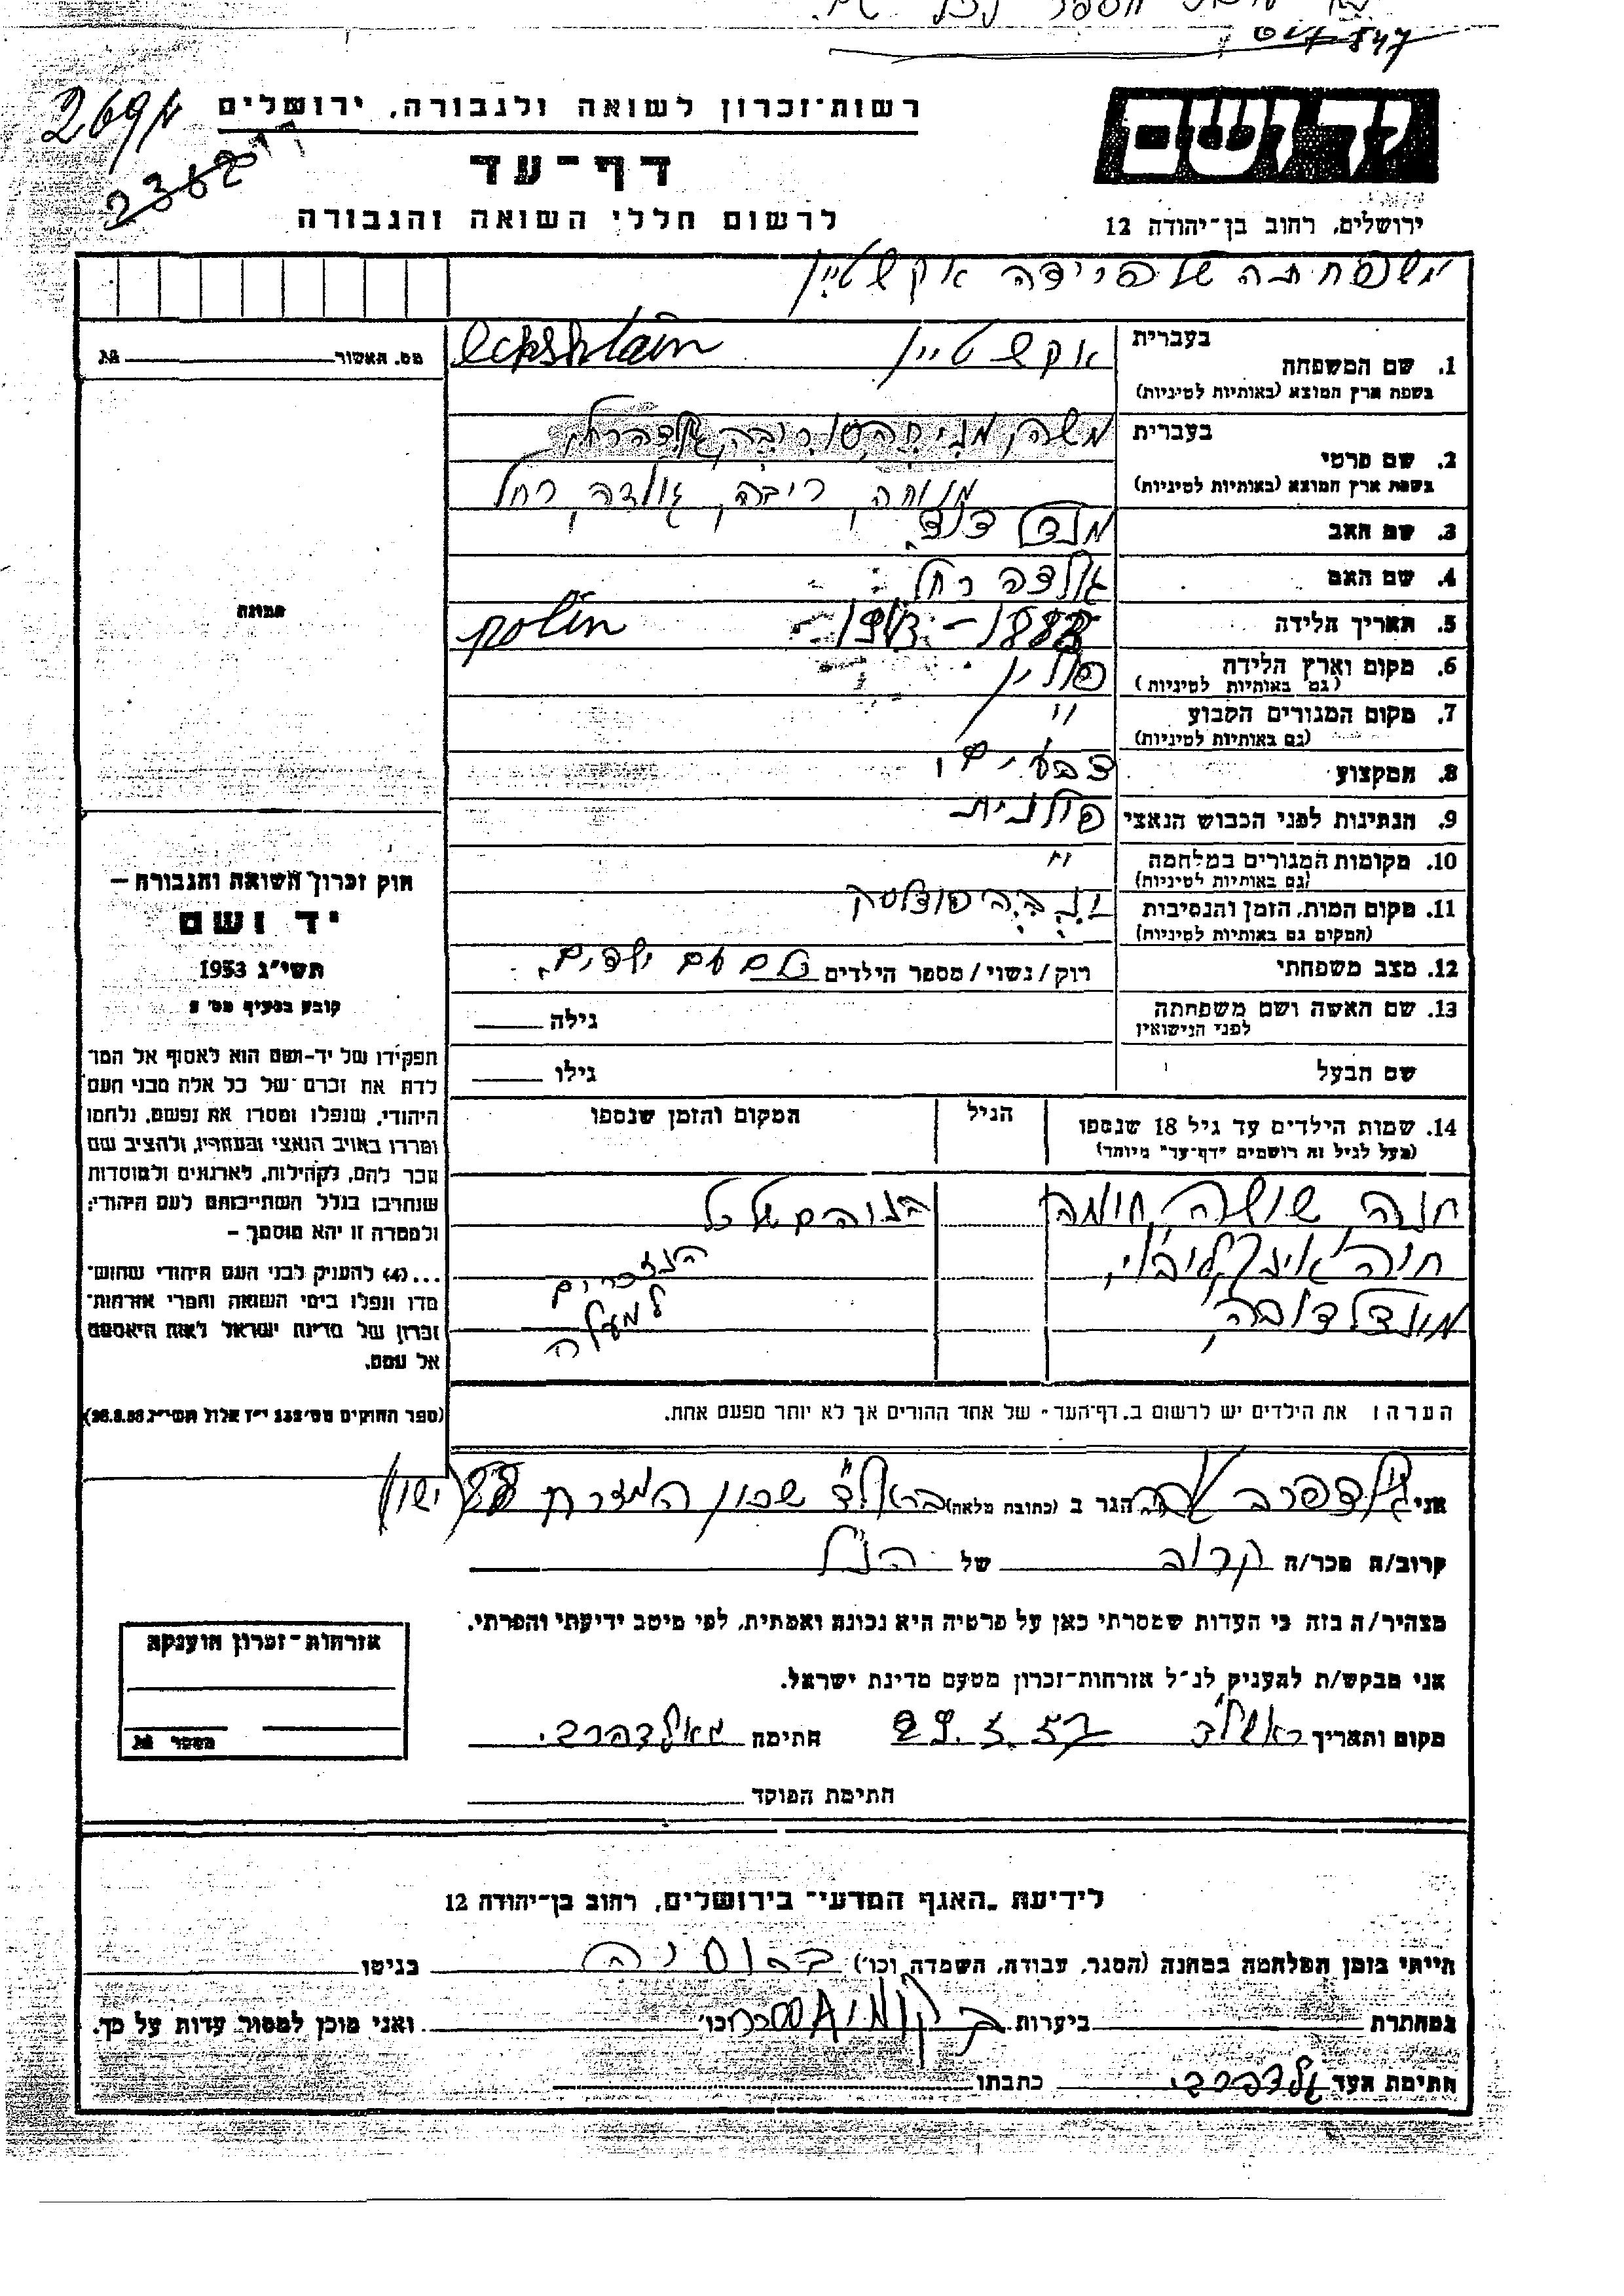 847
269א
רשות־זכרון לשואה ולגבורה, ירושלים
יד ושם
2362
דף־עד
לרשום חללי השואה והגבורה
ירושלים, רחוב בן־יהודה 12
משפחתה של פרידה אקשטיין
בעברית אקשטיין eckshtain
1. שם המשפחה
בשפת ארץ המוצא (באותיות לטיניות)
מס. האשור №
בעברית
2. שם פרטי
בשפת ארץ המוצא (באותיות לטיניות) מנוחה, ריבה, גולדה, רחל
3. שם האב
4. שם האם גולדה רחל
5. תאריך הלידה polin
תמונה
6. מקום וארץ הלידה פולין
(גם באותיות לטיניות)
7. מקום המגורים הקבוע "
(גם באותיות לטיניות)
8. המקצוע צבעים
9. הנתינות לפני הכבוש הנאצי פולנית
10. מקומות המגורים במלחמה "
(גם באותיות לטיניות)
11. מקום המות, הזמן והנסיבות
(המקום גם באותיות לטיניות)
12. מצב משפחתי רוק/נשוי/מספר הילדים כולם עם ילדים.
13. שם האשה ושם משפחתה גילה
לפני הנישואין
שם הבעל גילו
חוק זכרון השואה והגבורה –
יד ושם
תשי"ג 1953
קובע בסעיף מס׳ 2
תפקידו של יד-ושם הוא לאסוף אל המו־
לדת את זכרם של כל אלה מבני העם
היהודי, שנפלו ומסרו את נפשם, נלחמו
ומרדו באויב הנאצי ובעוזריו, ולהציב שם
וזכר להם, לקהילות, לארגונים ולמוסדות
שנחרבו בגלל השתייכותם לעם היהודי;
ולמטרה זו יהא מוסמך –
...(4) להעניק לבני העם היהודי שהוש־
מדו ונפלו בימי השואה והמרי אזרחות־
זכרון של מדינת ישראל לאות היאספם
אל עמם.
(ספר החוקים מס׳ 132 י"ז אלול תשי"ג, 28.8.53)
14. שמות הילדים עד גיל 18 שנספו הגיל המקום והזמן שנספו
(מעל לגיל זה רושמים "דף-עד" מיוחד)
חנה, שושה,
חיה,
הנזכרים
למעלה
הערה: את הילדים יש לרשום ב„דף־העד״ של אחד ההורים אך לא יותר מפעם אחת.
אני גולדפרב הגר ב (כתובת מלאה) בראשל"צ שכון המזרח
קרוב/ה מכר/ה קרוב של הנ"ל
מצהיר/ה בזה כי העדות שמסרתי כאן על פרטיה היא נכונה ואמתית, לפי מיטב ידיעתי והכרתי.
אני מבקש/ת להעניק לנ"ל אזרחות־זכרון מטעם מדינת ישראל.
מקום ותאריך ראשל"צ 29.5.57 חתימה
אזרחות־זכרון הוענקה
מספר №
חתימת הפוקד
לידיעת „האגף המדעי״ בירושלים, רחוב בן־יהודה 12
הייתי בזמן המלחמה במחנה (הסגר, עבודה, השמדה, וכו׳) ברוסיה בגיטו
במחתרת ביערות וכו׳ ואני מוכן למסור עדות על כך.
חתימת העד גולדפרב כתבתו